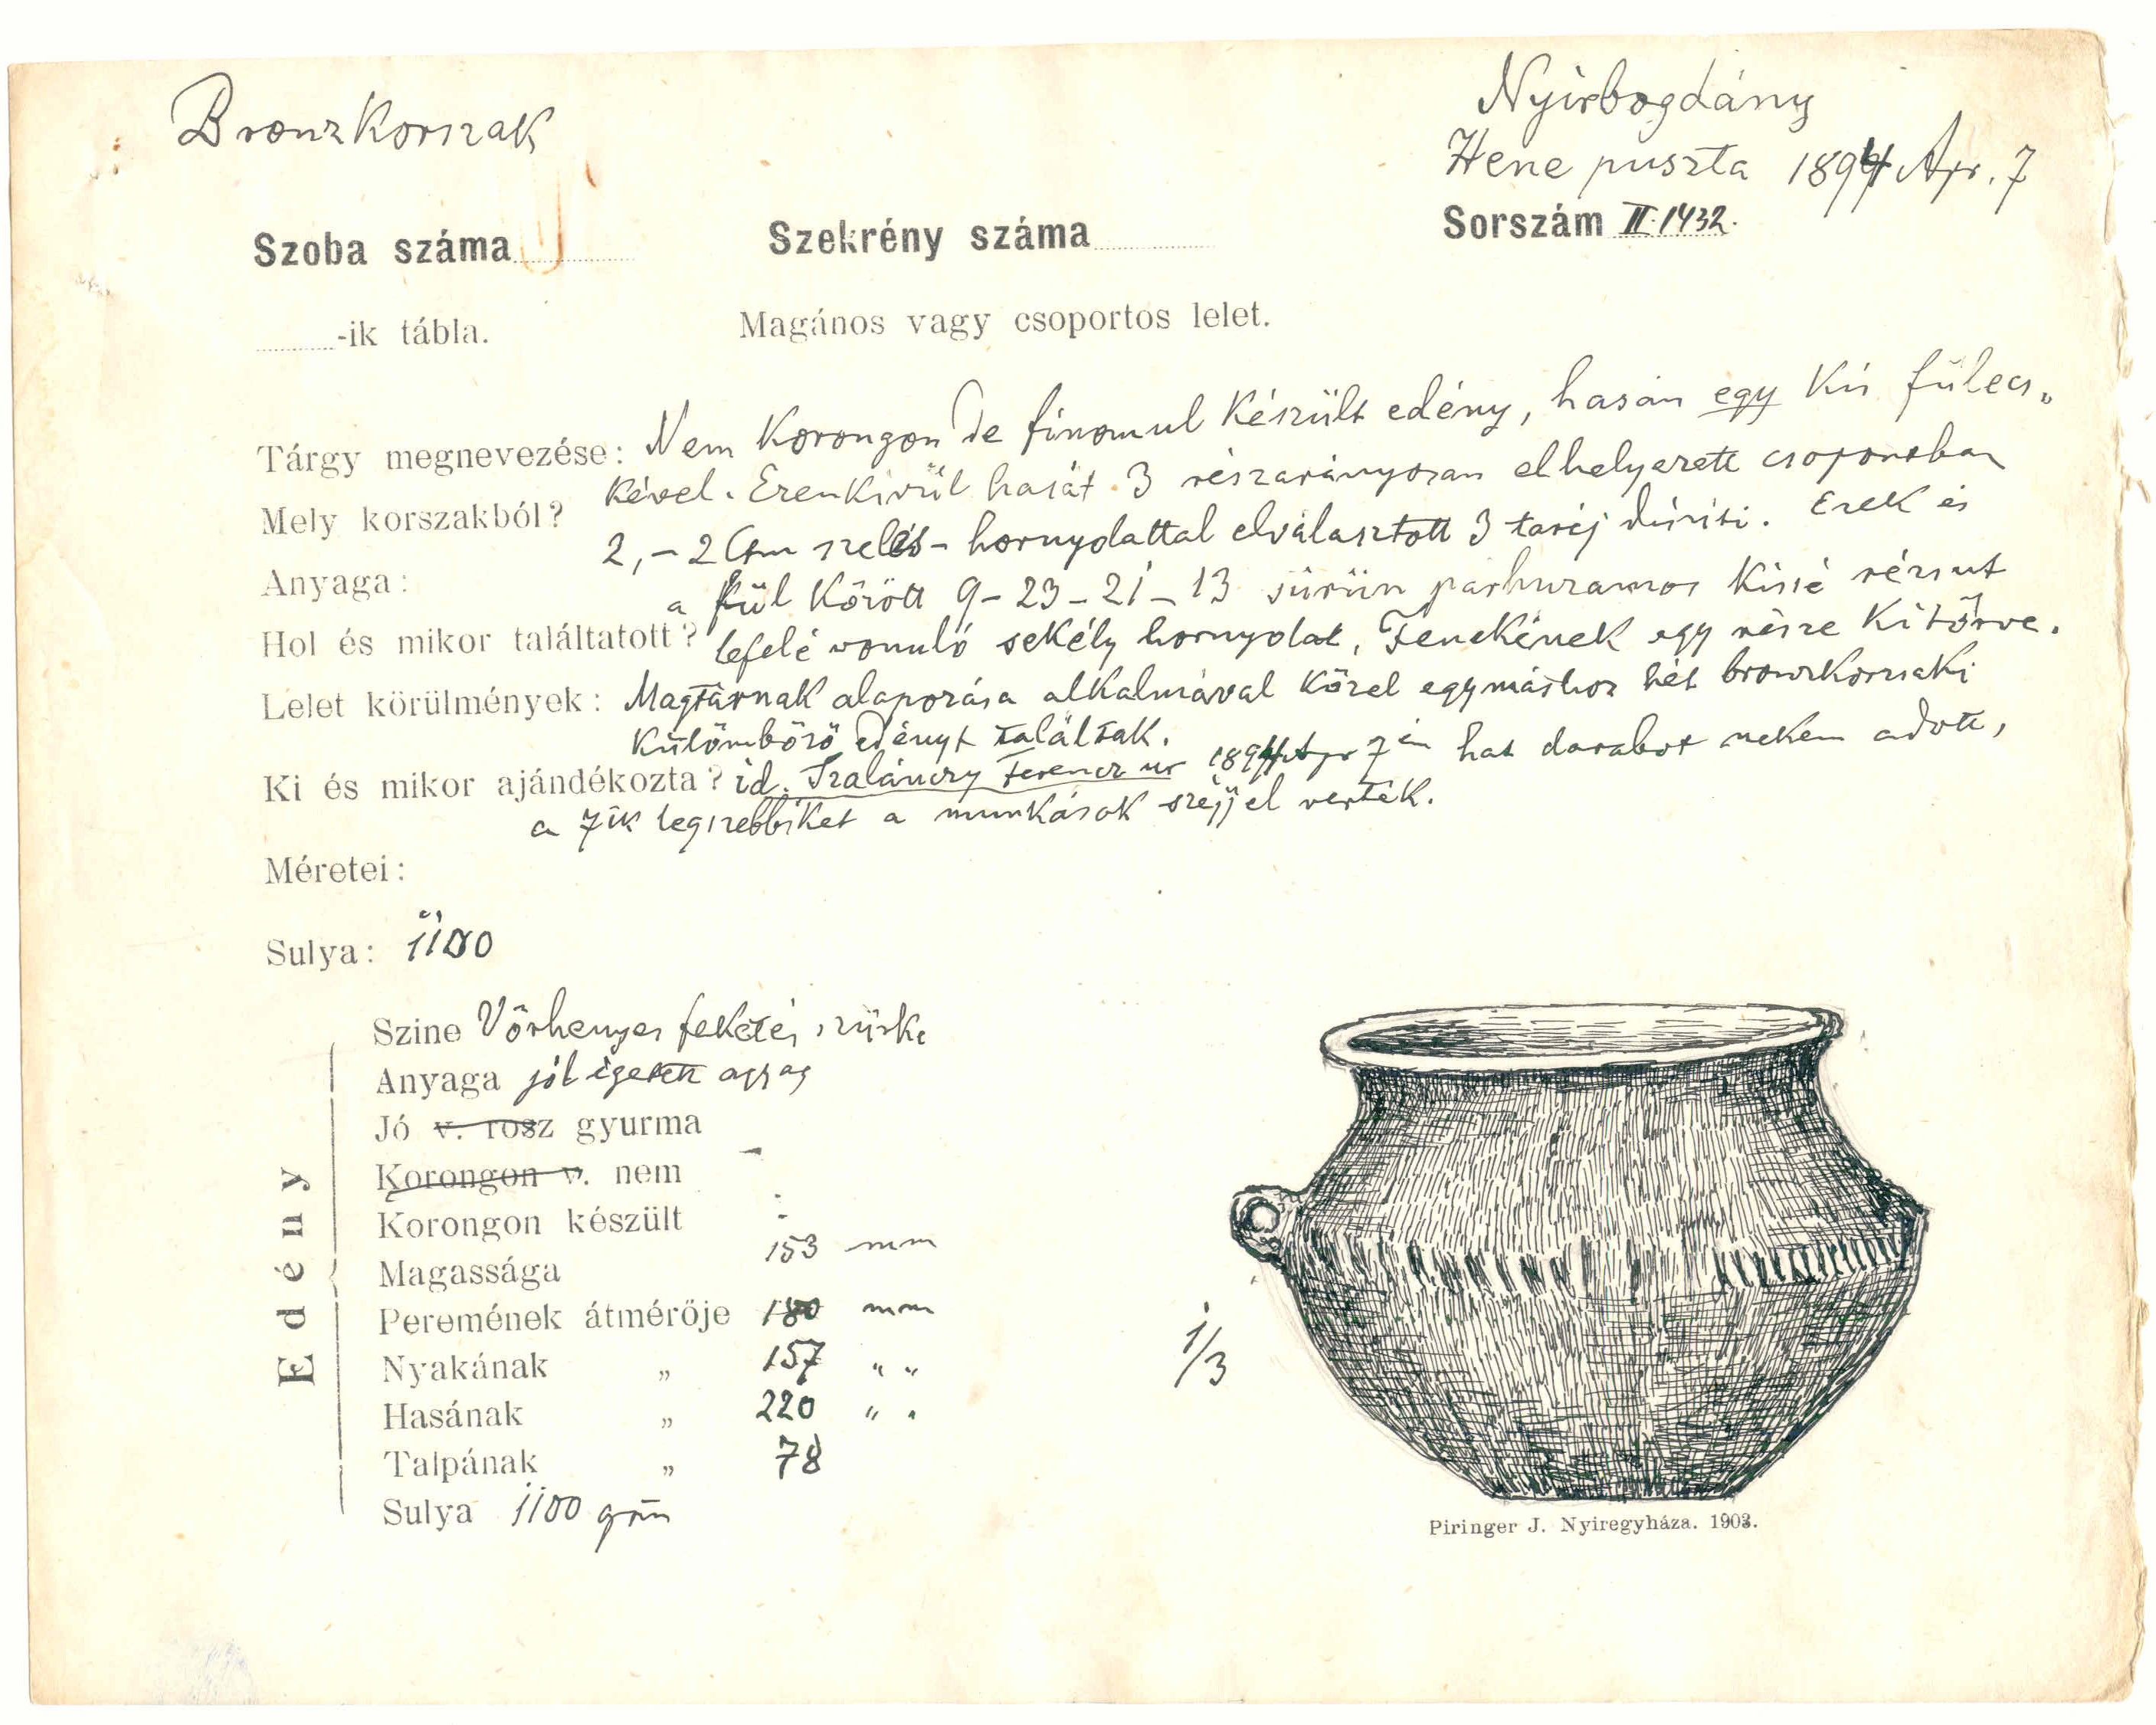 Bronzkorszak
Nyirbogdány
Hene puszta 1894 Apr. 7
Szoba száma
Szekrény száma
Sorszám II.1432.
-ik tábla.
Magános vagy csoportos lelet.
Tárgy megnevezése: Nem Korongon de finomul Készült edény, hasán egy Kis fülecs„
Kével. Ezenkivül hasát 3 részarányosan elhelyezett csoportban
Mely korszakból?
2,-2 Cm széles hornyolattal elválasztott 3 taréj disziti. Ezek és
Anyaga:
a fül Körött 9-23-21-13 sürün parhuzamos Kissé rézsut
Hol és mikor találtatott?
lefelé vonuló sekély hornyolat, Fenekének egy része Kitörve.
Lelet körülmények: Magtárnak alapozása alkalmával Közel egymáshoz hét bronzkorszaki
Külömbözö edényt találtak.
Ki és mikor ajándékozta? id. Szalánczy Ferencz ur 1894 Apr 7én hat darabot nekem adott,
a 7ik legszebbiket a munkások széjjel verték.
Méretei:
Sulya: 1100
Edény
Szine Vörhenyes feketés szürke
Anyaga jól égetett agyag
Jó v. rosz gyurma
Korongon v. nem
Korongon készült
Magassága 153 mm
Peremének átmérője 180 mm
Nyakának „ 157 „ „
Hasának „ 220 „ „
Talpának „ 78
Sulya 1100 gm
1/3
Piringer J. Nyiregyháza. 1903.